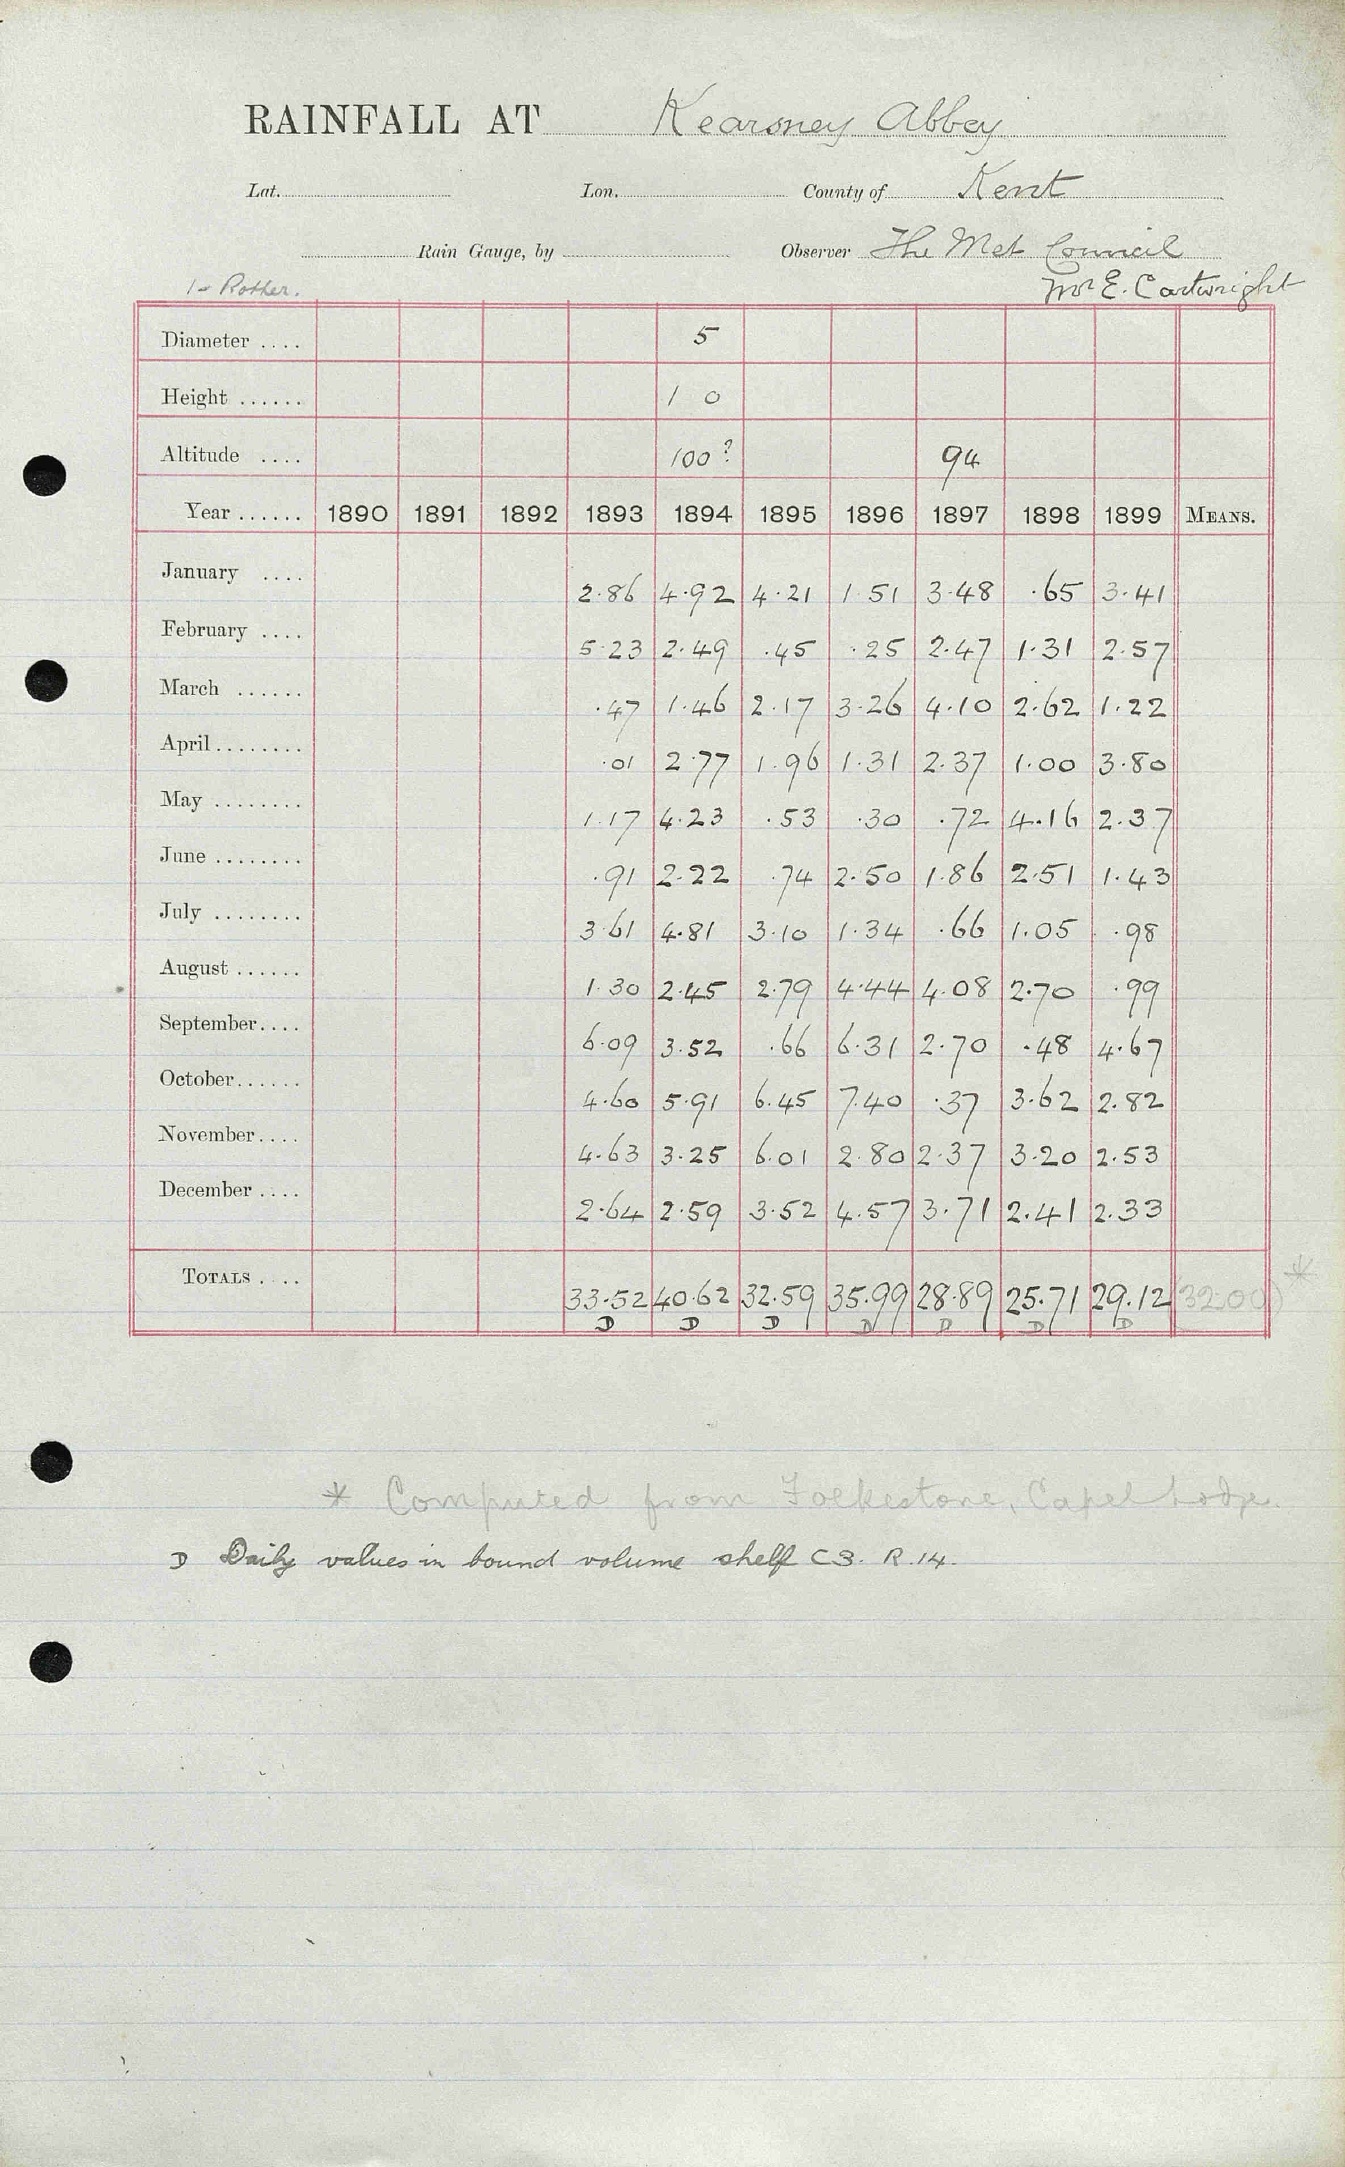 RAINFALL AT Kearsney Abbey
Lat. Lon. County of Kent
Rain Gauge, by Observer The Met Council
1- Rother. Mr E. Cartwright
Diameter .... 5
Height ...... 1 0
Altitude .... 100? 94
Year ...... 1890 1891 1892 1893 1894 1895 1896 1897 1898 1899 MEANS.
January .... 2.86 4.92 4.21 1.51 3.48 .65 3.41
February .... 5.23 2.49 .45 .25 2.47 1.31 2.57
March ...... .47 1.46 2.17 3.26 4.10 2.62 1.22
April ........ .01 2.77 1.96 1.31 2.37 1.00 3.80
May ........ 1.17 4.23 .53 .30 .72 4.16 2.37
June ........ .91 2.22 .74 2.50 1.86 2.51 1.43
July ........ 3.61 4.81 3.10 1.34 .66 1.05 .98
August ...... 1.30 2.45 2.79 4.44 4.08 2.70 .99
September.... 6.09 3.52 .66 6.31 2.70 .48 4.67
October...... 4.60 5.91 6.45 7.40 .37 3.62 2.82
November.... 4.63 3.25 6.01 2.80 2.37 3.20 2.53
December .... 2.64 2.59 3.52 4.57 3.71 2.41 2.33
TOTALS .... 33.52 40.62 32.59 35.99 28.89 25.71 29.12 (32.00) *
D D D D D D D
* Computed from Folkestone, Capel Lodge.
D Daily values in bound volume shelf C3. R.14.